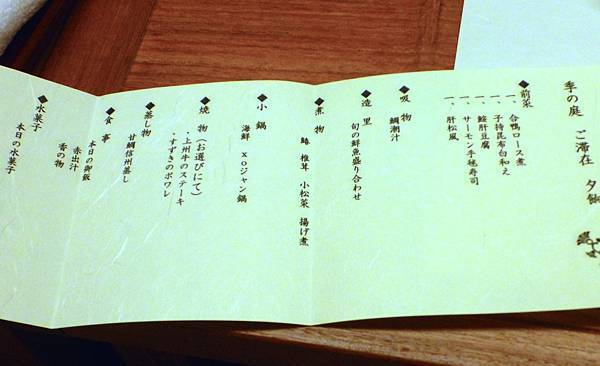 季の庭 ご滞在 夕餉
◆前菜
一、合鴨ロース煮
一、子持昆布白和え
一、鮟肝豆腐
一、サーモン手毬寿司
一、肝松風
◆吸 物
鯛潮汁
◆造 里
旬の鮮魚盛り合わせ
◆煮 物
椎茸 小松菜 揚げ煮
◆小 鍋
海鮮 xoジャン鍋
◆焼 物 (お選びにて)
・上州牛のステーキ
・すずきのポワレ
◆蒸し物
甘鯛信州蒸し
◆食 事
本日の御飯
赤出汁
香の物
◆水菓子
本日の水菓子